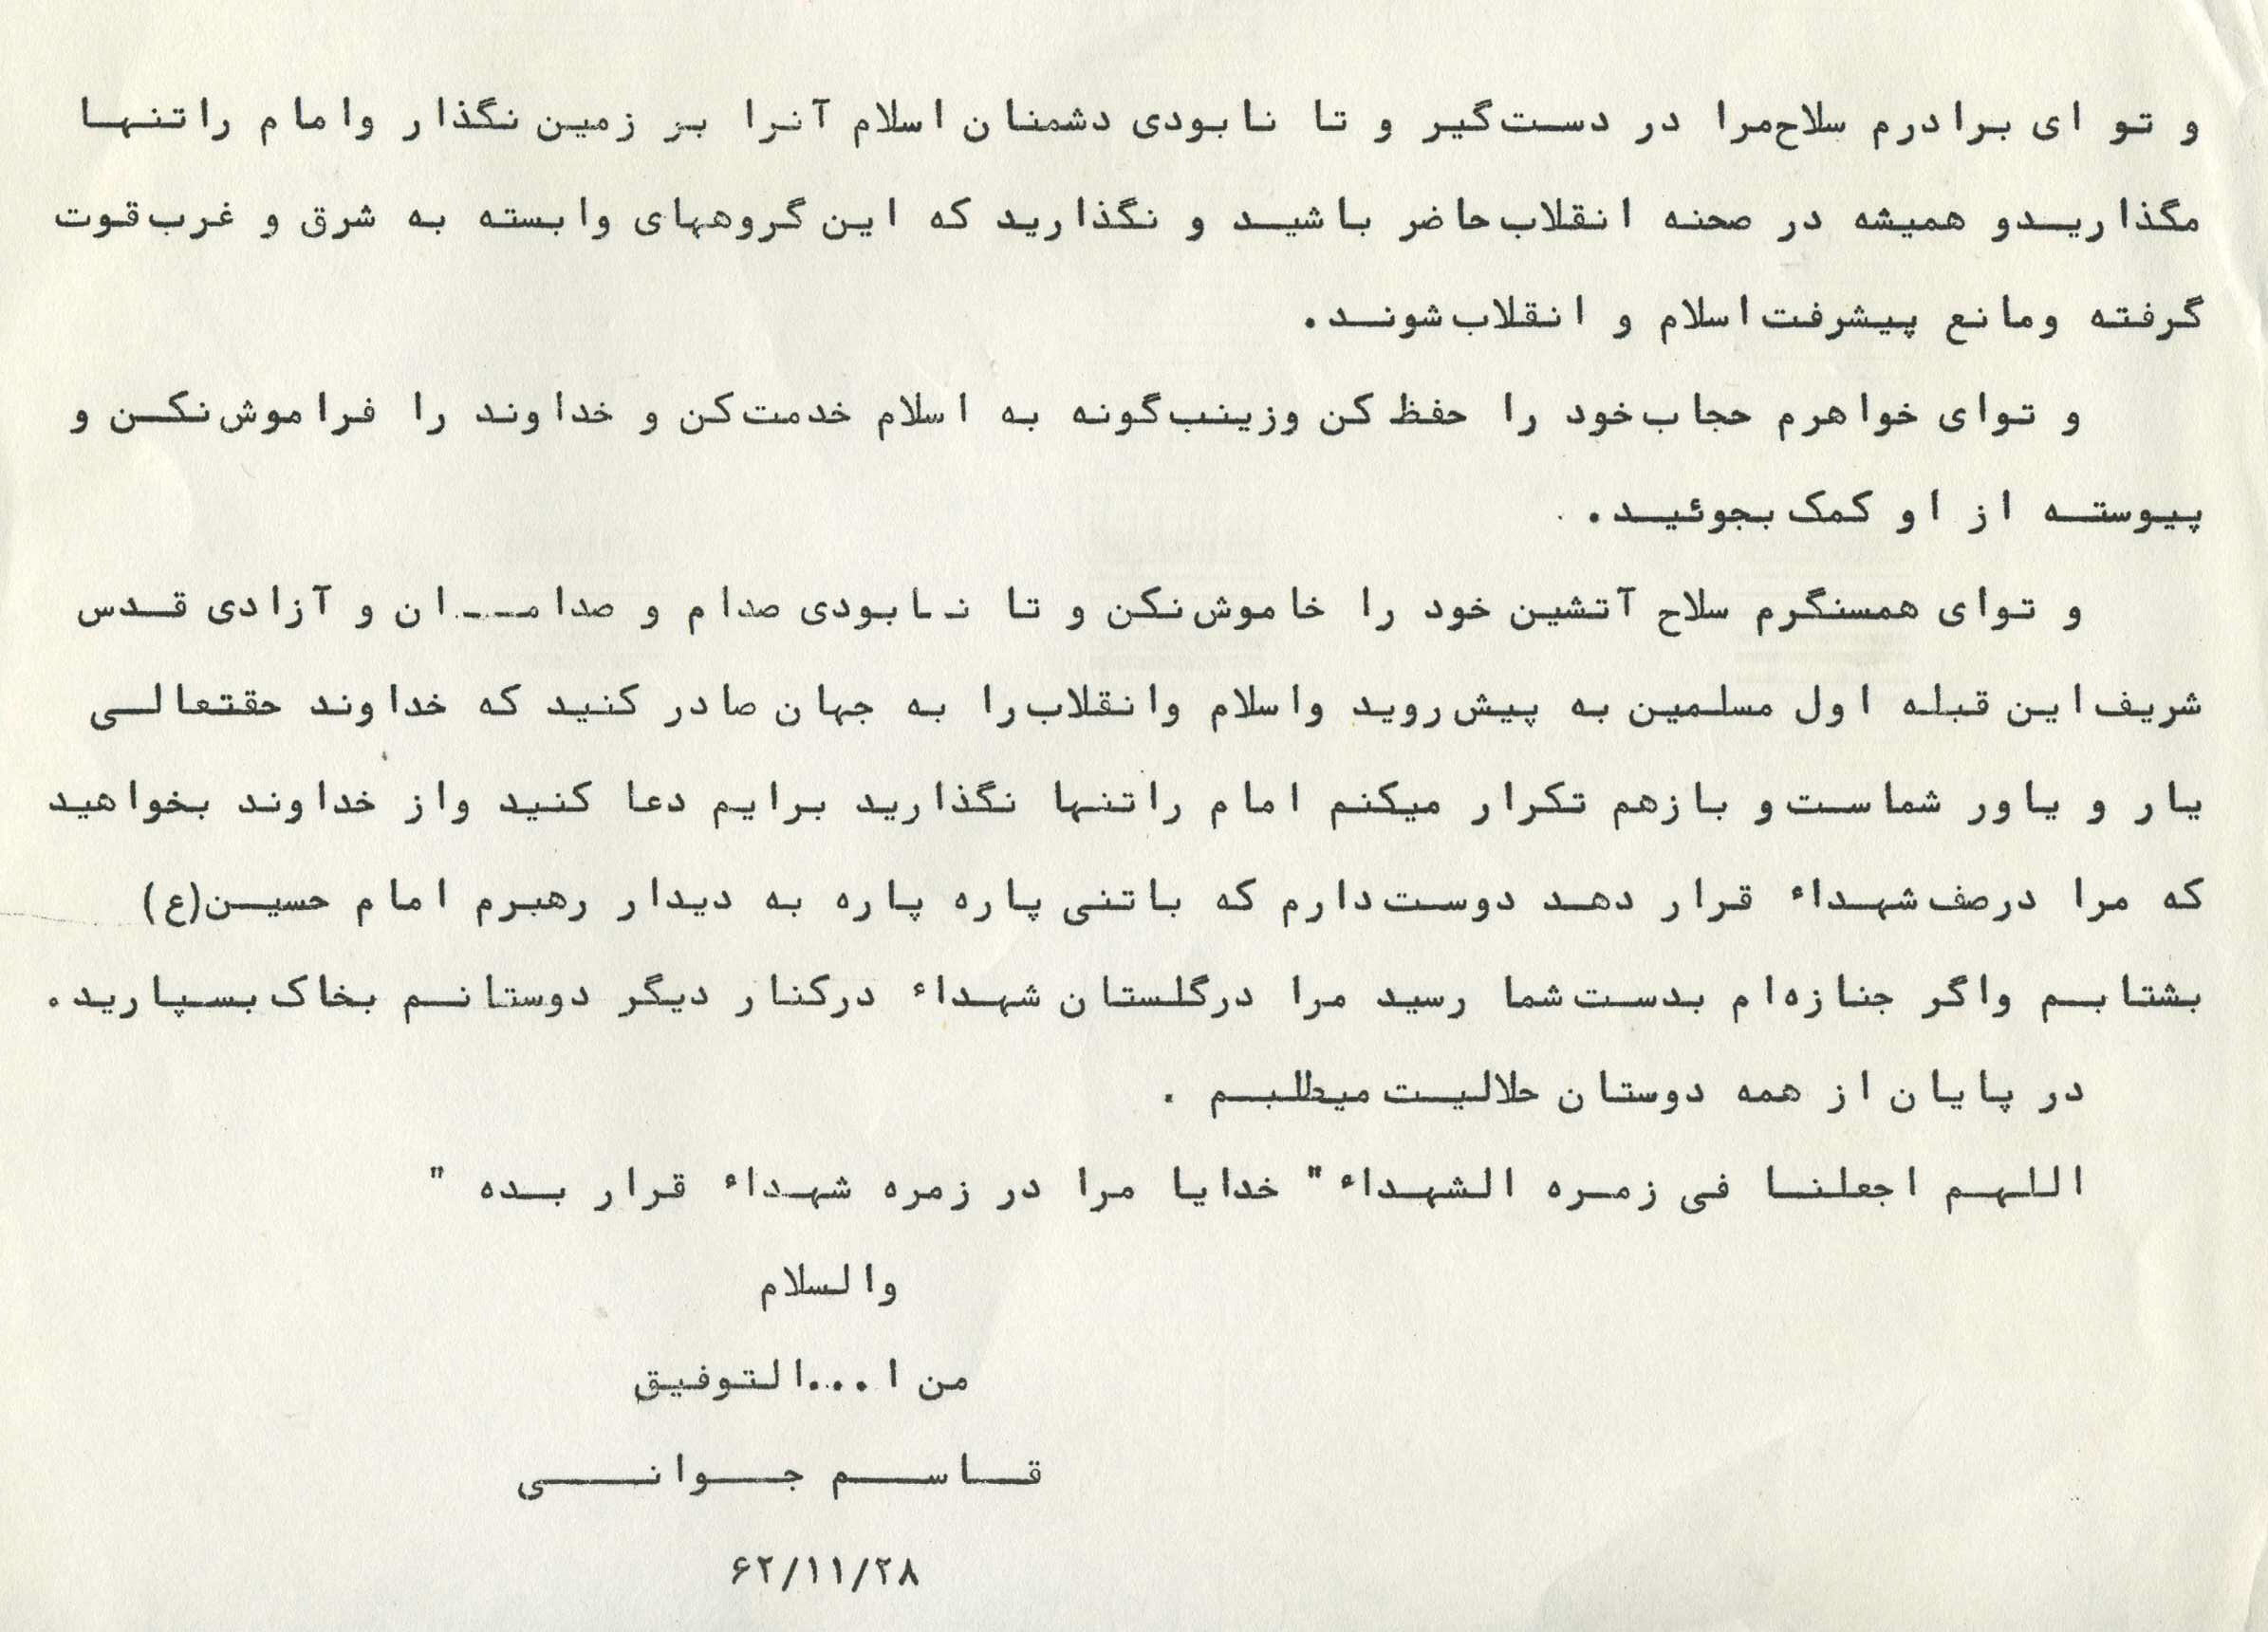 و تو ای برادرم سلاح‌مرا در دست‌گیر و تا نابودی دشمنان اسلام آنرا بر زمین نگذار وامام راتنها
مگذاریدو همیشه در صحنه انقلاب‌حاضر باشید و نگذارید که این گروههای وابسته به شرق و غرب‌قوت
گرفته ومانع پیشرفت‌اسلام و انقلاب‌شوند.
و توای خواهرم حجاب‌خود را حفظ کن وزینب‌گونه به اسلام خدمت‌کن و خداوند را فراموش‌نکن و
پیوسته از او کمک بجوئید.
و توای همسنگرم سلاح آتشین خود را خاموش‌نکن و تا نابودی صدام و صدامــان و آزادی قدس
شریف‌این قبله اول مسلمین به پیش‌روید واسلام وانقلاب‌را به جهان صادر کنید که خداوند حقتعالی
یار و یاور شماست‌و بازهم تکرار میکنم امام راتنها نگذارید برایم دعا کنید واز خداوند بخواهید
که مرا درصف‌شهداء قرار دهد دوست‌دارم که باتنی پاره پاره به دیدار رهبرم امام حسین(ع)
بشتابم واگر جنازه‌ام بدست‌شما رسید مرا درگلستان شهداء درکنار دیگر دوستانم بخاک‌بسپارید.
در پایان از همه دوستان حلالیت‌میطلبم .
اللهم اجعلنا فی زمره الشهداء" خدایا مرا در زمره شهداء قرار بده "
والسلام
من ا...التوفیق
قاسم جوانی
۶۲/۱۱/۲۸